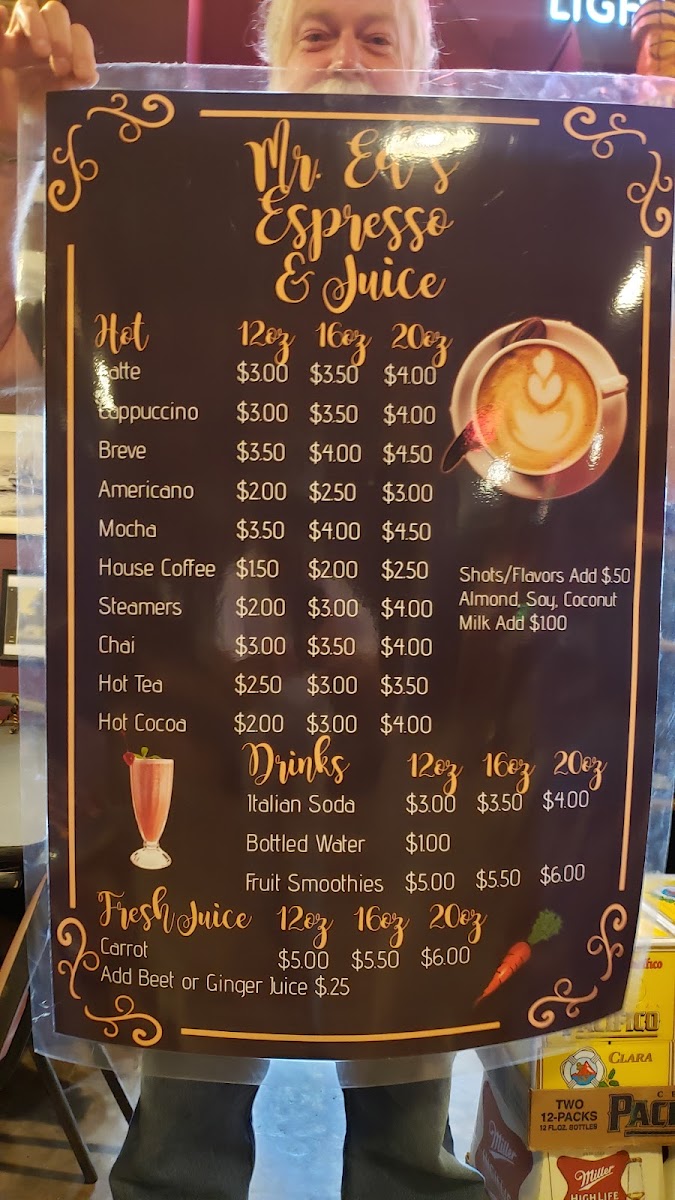 LIGH
Mr. Ed's
Espresso
& Juice
Hot 12oz 16oz 20oz
Latte $3.00 $3.50 $4.00
Cappuccino $3.00 $3.50 $4.00
Breve $3.50 $4.00 $4.50
Americano $2.00 $2.50 $3.00
Mocha $3.50 $4.00 $4.50
House Coffee $1.50 $2.00 $2.50
Steamers $2.00 $3.00 $4.00
Chai $3.00 $3.50 $4.00
Hot Tea $2.50 $3.00 $3.50
Hot Cocoa $2.00 $3.00 $4.00
Shots/Flavors Add $.50
Almond, Soy, Coconut
Milk Add $1.00
Drinks 12oz 16oz 20oz
Italian Soda $3.00 $3.50 $4.00
Bottled Water $1.00
Fruit Smoothies $5.00 $5.50 $6.00
Fresh Juice 12oz 16oz 20oz
Carrot $5.00 $5.50 $6.00
Add Beet or Ginger Juice $.25
PACIFICO
CLARA
TWO
12-PACKS
12 FL.OZ. BOTTLES
PACI
Miller
Miller
HIGH LIFE